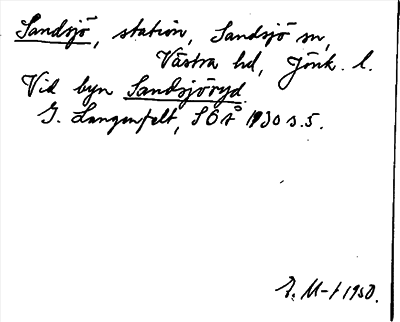 Sandsjö, station, Sandsjö sn,
Västra hd, Jönk. l.
Vid byn Sandsjöryd.
G. Langenfelt, SOÅ 1930 s. 5.
1950.